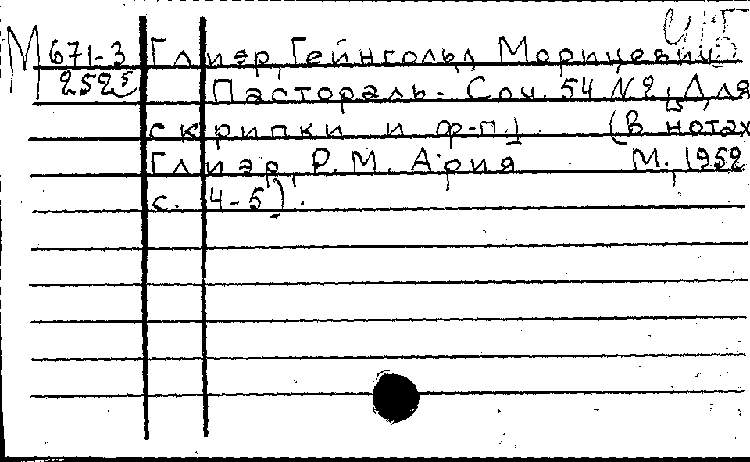 М 671-3 Глиэр, Гейнгольд Морицевич
2525 Пастораль. Соч. 54 №2, [Для
скрипки и ф-п.] (В нотах
Глиэр, Р.М. Ария М., 1952
с. 4-5).